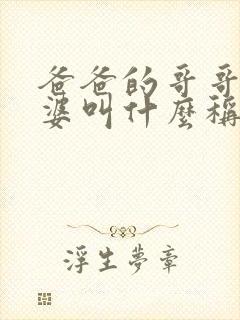 爸爸的哥哥
婆叫什麼稱
浮生夢章